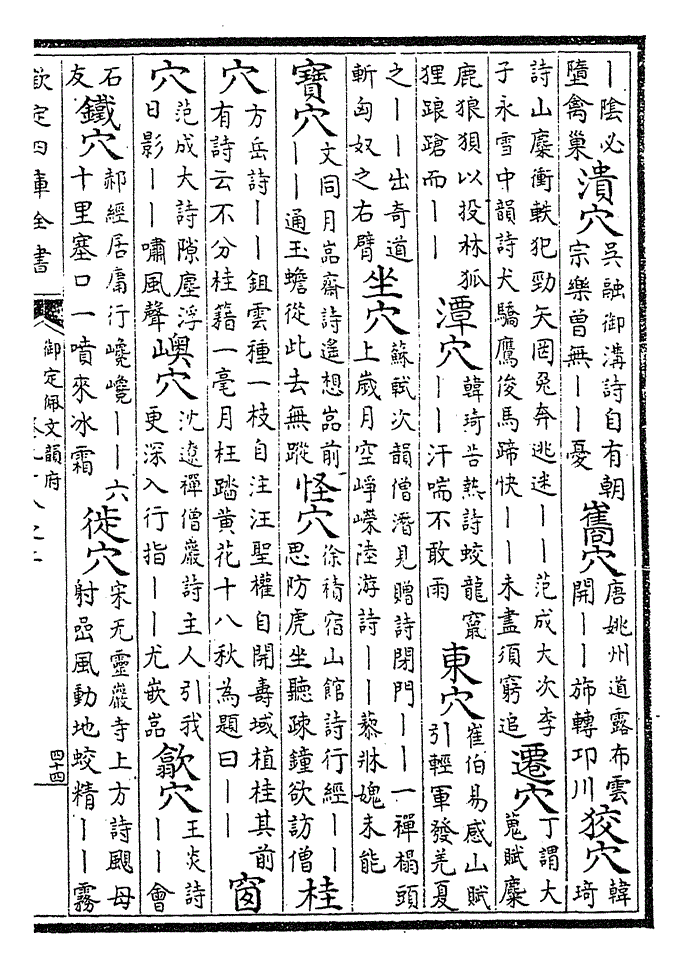 丨陰必
墮禽巢
潰穴
吳融御溝詩自有朝
宗樂曽無丨丨憂
巂穴
唐姚州道露布雲
開丨丨斾轉邛川
狡穴
韓
琦
詩山麋衝軼犯勁矢罔兔奔逃迷丨丨范成大次李
子永雪中韻詩犬驕鷹俊馬蹄快丨丨未盡須窮追
遷穴
丁謂大
蒐賦麋
鹿狼狽以投林狐
狸踉蹌而丨丨
潭穴
韓琦苦熱詩蛟龍竄
丨丨汗喘不敢雨
東穴
崔伯易感山賦
引輕軍發羌夏
之丨丨出奇道
斬匈奴之右臂
坐穴
蘇軾次韻僧潛見贈詩閉門丨丨一禪榻頭
上歳月空崢嶸陸游詩丨丨藜牀媿未能
寶穴
文同月嵓齋詩遙想嵓前
丨丨通玉蟾從此去無蹤
怪穴
徐積宿山館詩行經丨丨
思防虎坐聽疎鐘欲訪僧
桂
穴
方岳詩丨丨鉏雲種一枝自注汪聖權自開壽域植桂其前
有詩云不分桂籍一毫月枉踏黄花十八秋為題曰丨丨
窗
穴
范成大詩隙塵浮
日影丨丨嘯風聲
㠗穴
沈遼禪僧巖詩主人引我
更深入行指丨丨尤嵌嵓
歙穴
王炎詩
丨丨會
石
友
鐵穴
郝經居庸行巉巉丨丨六
十里塞口一噴來冰霜
徙穴
宋无靈巖寺上方詩颶母
射嵒風動地蛟精丨丨霧
欽定四庫全書
御定佩文韻府
四十四